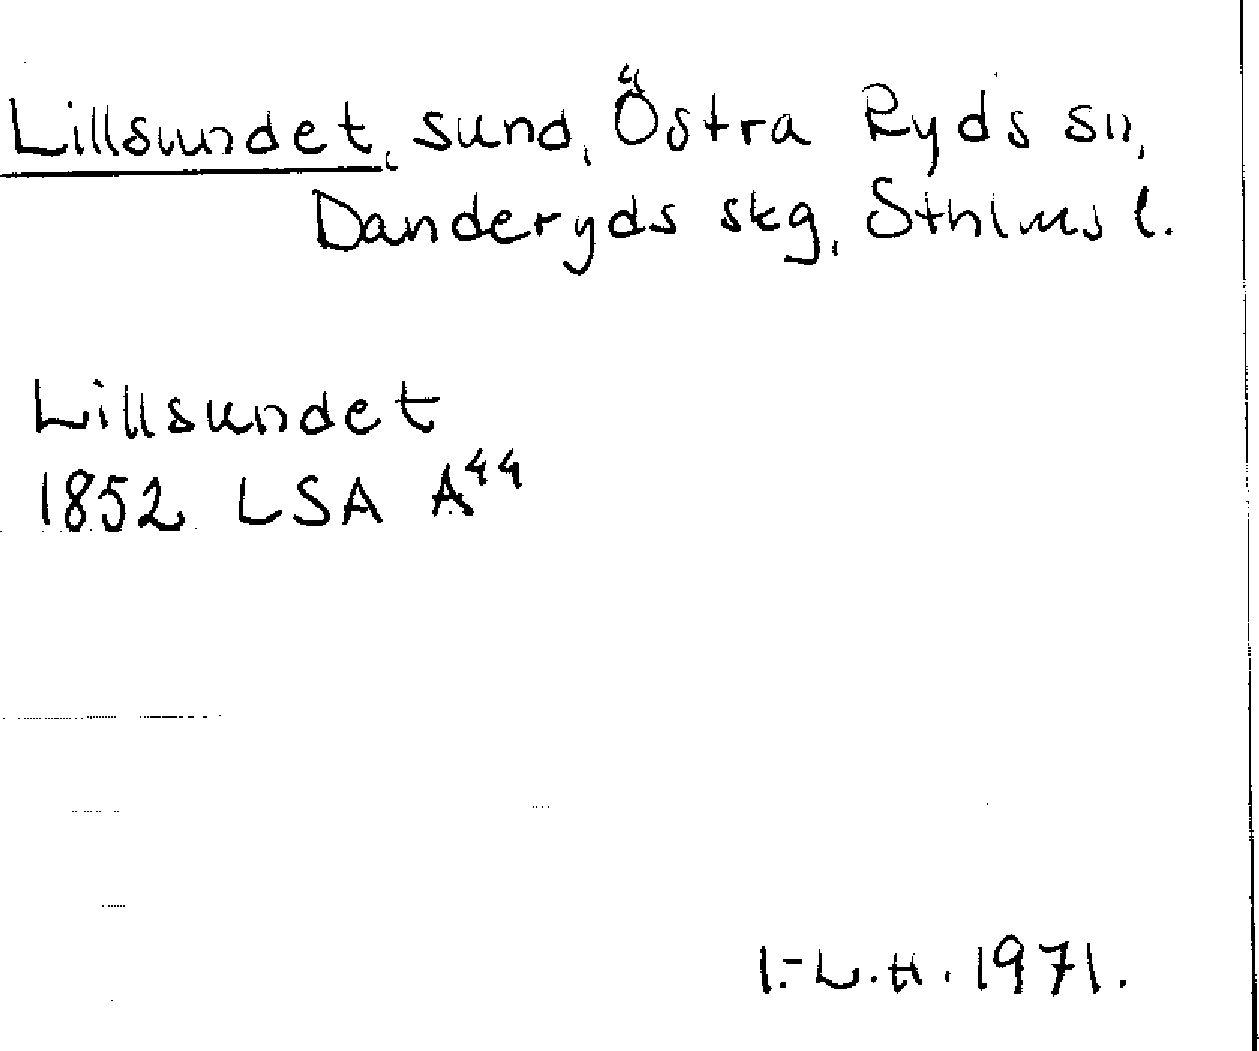 Lillsundet, sund, Östra Ryds sn,
Danderyds skg, Sthlms l.
Lillsundet
1852 LSA A⁴⁴
I.-L.H. 1971.